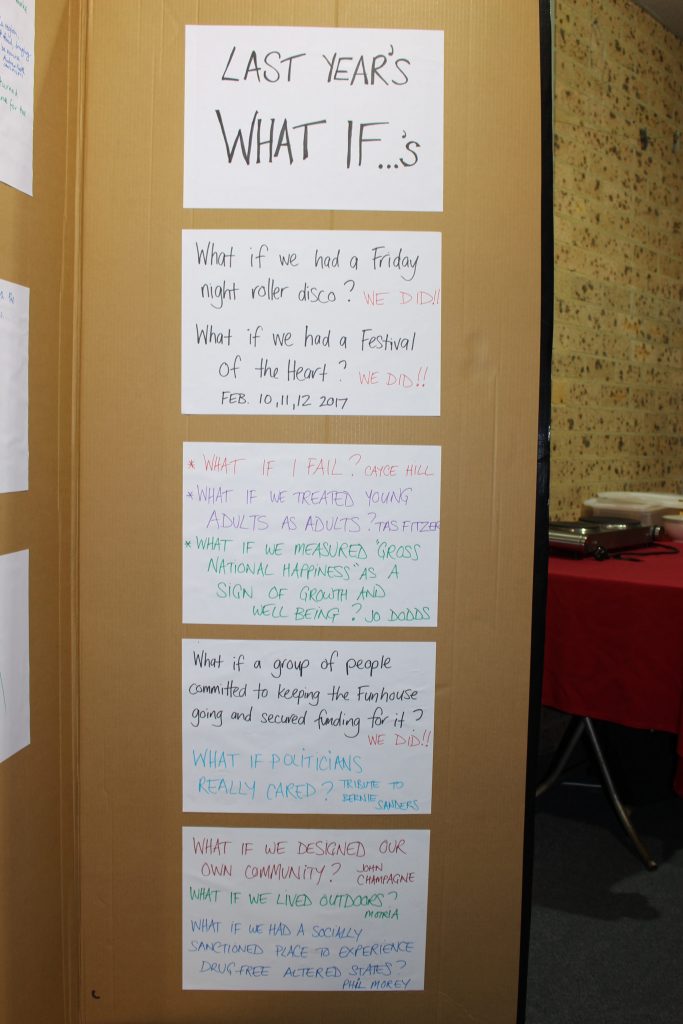 LAST YEAR'S
WHAT IF...'s
What if we had a Friday
night roller disco? WE DID!!
What if we had a Festival
of the Heart? WE DID!!
FEB. 10,11,12 2017
* WHAT IF I FAIL? CAYCE HILL
* WHAT IF WE TREATED YOUNG
ADULTS AS ADULTS? TAS FITZER
* WHAT IF WE MEASURED "GROSS
NATIONAL HAPPINESS" AS A
SIGN OF GROWTH AND
WELL BEING? JO DODDS
What if a group of people
committed to keeping the Funhouse
going and secured funding for it?
WE DID!!
WHAT IF POLITICIANS
REALLY CARED? TRIBUTE TO
BERNIE SANDERS
WHAT IF WE DESIGNED OUR
OWN COMMUNITY? JOHN
CHAMPAGNE
WHAT IF WE LIVED OUTDOORS?
MOTRIA
WHAT IF WE HAD A SOCIALLY
SANCTIONED PLACE TO EXPERIENCE
DRUG-FREE ALTERED STATES?
PHIL MOREY